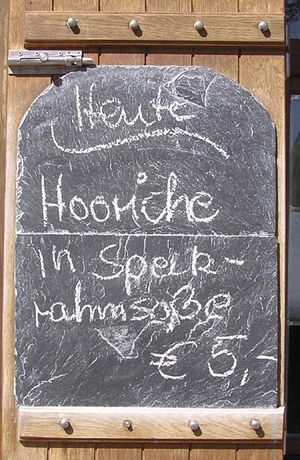 Heute
Hooriche
in Speck-
rahmsoße
€ 5,-